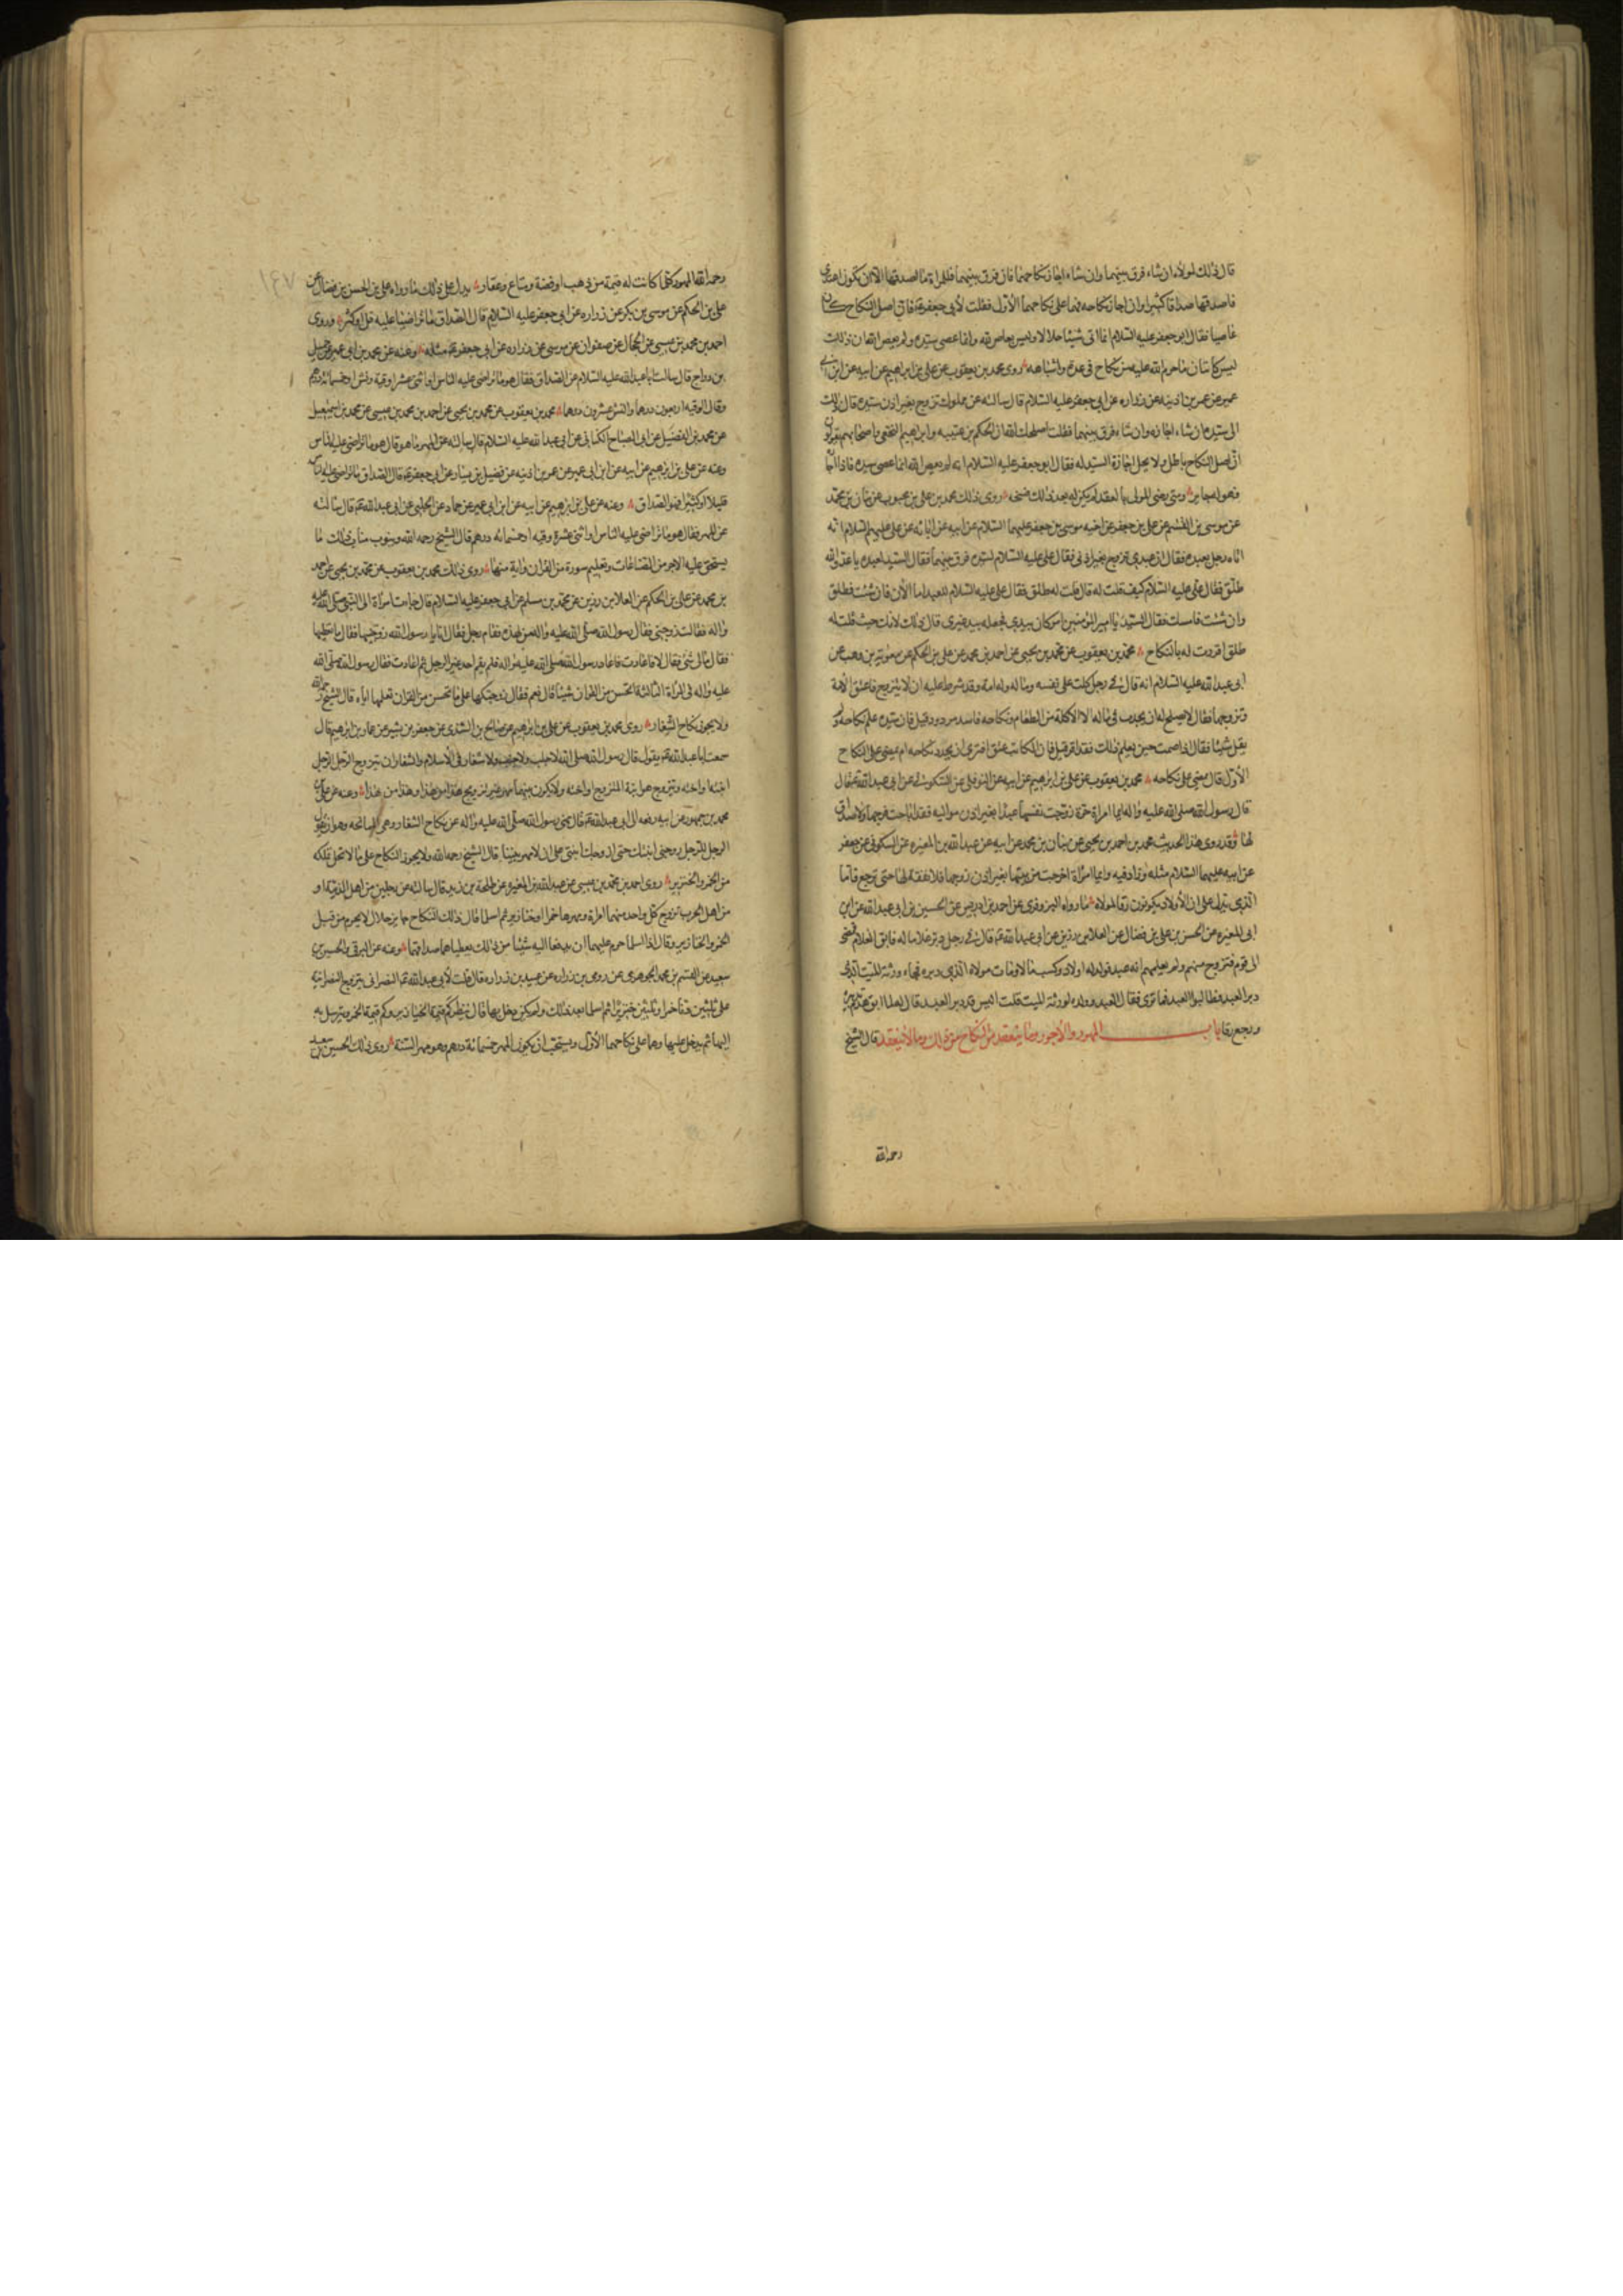 قال ذلك لمولاه ان شاء فرق بينهما وان شاء اجاز نكاحهما فان فرق بينهما فللمراة ما اصدقها الا ان يكون اعتدى
فاصدقها صداقا كثيرا وان اجاز نكاحه فهما على نكاحهما الاول فقلت لابي جعفر ع فان اصل النكاح كان
عاصيا فقال ابو جعفر عليه السلام انما اتى شيئا حلالا وليس بعاص لله وانما عصى سيده ولم يعص الله ان ذلك
ليس كاتيان ما حرم الله عليه من نكاح في عدة واشباهه روى محمد بن يعقوب عن علي بن ابراهيم عن ابيه عن ابن ابي
عمير عن عمر بن اذينه عن زراره عن ابي جعفر عليه السلام قال سالته عن مملوك تزوج بغير اذن سيده قال ذلك
الى سيده ان شاء اجازه وان شاء فرق بينهما فقلت اصلحك الله ان الحكم بن عتيبه وابراهيم النخعي واصحابهم يقولون
ان اصل النكاح باطل ولا يحل اجازة السيد له فقال ابو جعفر عليه السلام انه لم يعص الله انما عصى سيده فاذا اجاز
فهو له جايز ومتى رضى المولى بالعقد لم يكن له بعد ذلك فسخه روى ذلك محمد بن علي بن محبوب عن بنان بن محمد
عن موسى بن القسم عن علي بن جعفر عن اخيه موسى بن جعفر عليهما السلام عن ابيه عن ابائه عن علي عليهم السلام انه
اتاه رجل بعبده فقال ان عبدي تزوج بغير اذني فقال علي عليه السلام لسيده فرق بينهما فقال السيد لعبده يا عدو الله
طلق فقال علي عليه السلام كيف قلت له قال قلت له طلق فقال علي عليه السلام للعبد اما الان فان شئت فطلق
وان شئت فامسك فقال السيد يا امير المؤمنين امر كان بيدي فجعلته بيد غيرى قال ذلك لانك حيث قلت له
طلق اقررت له بالنكاح محمد بن يعقوب عن محمد بن يحيى عن احمد بن محمد عن علي بن الحكم عن معوية بن وهب عن
ابي عبد الله عليه السلام انه قال في رجل كاتب على نفسه وماله وله امة وقد شرط عليه ان لا يتزوج فاعتق الامة
وتزوجها فقال لا يصلح له ان يحدث في ماله الا الاكلة من الطعام ونكاحه فاسد مردود قيل فان سيده علم بنكاحه ولم
يقل شيئا فقال اذا صمت حين يعلم ذلك فقد اقر قيل فان المكاتب عتق افترى ان يجدد نكاحه ام يمضي على النكاح
الاول قال يمضي على نكاحه محمد بن يعقوب عن علي بن ابراهيم عن ابيه عن النوفلي عن السكوني عن ابي عبد الله ع قال
قال رسول الله صلى الله عليه واله ايما امراة حرة زوجت نفسها عبدا بغير اذن مواليه فقد اباحت فرجها ولا صداق
لها وقد روى هذا الحديث محمد بن احمد بن يحيى عن بنان بن محمد عن ابيه عن عبد الله بن المغيره عن السكوني عن جعفر
عن ابيه عليهما السلام مثله وزاد فيه وايما امراة خرجت من بيتها بغير اذن زوجها فلا نفقة لها حتى ترجع فاما
الذي يدل على ان الاولاد يكونون رقا لمولاه ما رواه البزوفرى عن احمد بن ادريس عن الحسين بن ابي عبد الله عن ابن
ابي المغيره عن الحسن بن علي بن فضال عن العلا بن رزين عن ابي عبد الله ع قال في رجل دبر غلاما له فابق الغلام فمضى
الى قوم فتزوج منهم ولم يعلمهم انه عبد فولد له اولاد وكسب مالا ومات مولاه الذي دبره فجاء ورثة الميت الذي
دبر العبد فطالبوا العبد فما ترى فقال العبد وولده لورثة الميت قلت اليس قد دبر العبد قال لما ابق هدم تدبيره
ورجع رقا باب المهور والاجور وما ينعقد من النكاح من ذلك وما لا ينعقد قال الشيخ
رحمه الله
رحمه الله المهور كلما كانت له قيمة من ذهب او فضة ومتاع وعقار يدل على ذلك ما رواه علي بن الحسن بن فضال عن
علي بن الحكم عن موسى بن بكر عن زراره عن ابي جعفر عليه السلام قال الصداق ما تراضيا عليه قل او كثر وروى
احمد بن محمد بن عيسى عن الحجال عن صفوان عن موسى عن زراره عن ابي جعفر ع مثله وعنه عن محمد بن ابي عمير عن جميل
بن دراج قال سالت ابا عبد الله عليه السلام عن الصداق فقال هو ما تراضى عليه الناس او اثنى عشر اوقية ونش او خمسمائة درهم
وقال الوقيه اربعون درهما والنش عشرون درهما محمد بن يعقوب عن محمد بن يحيى عن احمد بن محمد بن عيسى عن محمد بن اسمعيل
عن محمد بن الفضيل عن ابي الصباح الكناني عن ابي عبد الله عليه السلام قال سالته عن المهر ما هو قال هو ما تراضى عليه الناس
وعنه عن علي بن ابرهيم عن ابيه عن ابن ابي عمير عن عمر بن اذينه عن فضيل بن يسار عن ابي جعفر ع قال الصداق ما تراضى عليه الناس
قليلا او كثيرا فهو الصداق وعنه عن علي بن ابرهيم عن ابيه عن ابن ابي عمير عن حماد عن الحلبي عن ابي عبد الله ع قال سالته
عن المهر فقال هو ما تراضى عليه الناس او اثنى عشرة وقيه او خمسمائه درهم قال الشيخ رحمه الله وينوب مناب ذلك ما
يستحق عليه الاجر من الصناعات وتعليم سورة من القران واية منها روى ذلك محمد بن يعقوب عن محمد بن يحيى عن احمد
بن محمد عن علي بن الحكم عن العلا بن رزين عن محمد بن مسلم عن ابي جعفر عليه السلام قال جاءت امراة الى النبي صلى الله عليه
واله فقالت زوجني فقال رسول الله صلى الله عليه واله من لهذه فقام رجل فقال انا يا رسول الله زوجنيها فقال ما تعطيها
فقال مالي شئ فقال لا فاعادت فاعاد رسول الله صلى الله عليه واله فلم يقم احد غير الرجل ثم اعادت فقال رسول الله صلى الله
عليه واله في المراة الثالثة اتحسن من القران شيئا قال نعم فقال زوجتكها على ما تحسن من القران تعلمها اياه قال الشيخ رحمه الله
ولا يجوز نكاح الشغار روى محمد بن يعقوب عن علي بن ابرهيم عن صالح بن السندى عن جعفر بن بشير عن غياث بن ابرهيم قال
سمعت ابا عبد الله ع يقول قال رسول الله صلى الله لا جلب ولا جنب ولا شغار في الاسلام والشغار ان يتزوج الرجل الرجل
ابنته او اخته ويتزوج هو ابنة المتزوج او اخته ولا يكون بينهما مهر غير تزويج هذا من هذا وهذا من هذا وعنه عن علي بن
محمد بن جمهور عن ابيه رفعه الى ابي عبد الله ع قال نهى رسول الله صلى الله عليه واله عن نكاح الشغار وهي الممانحه وهو ان يقول
الرجل للرجل زوجني ابنتك حتى ازوجك ابنتي على ان لا مهر بيننا قال الشيخ رحمه الله ولا يجوز النكاح على ما لا يحل تملكه
من الخمر والخنزير روى احمد بن محمد بن عيسى عن عبد الله بن المغيره عن طلحة بن زيد قال سالته عن رجلين من اهل الذمة او
من اهل الحرب تزوج كل واحد منهما امراة ومهرها خمرا وخنازير ثم اسلما قال ذلك النكاح جايز حلال لا يحرم من قبل
الخمر والخنازير وقال اذا اسلما حرم عليهما ان يدفعا اليه شيئا من ذلك يعطياهما صداقهما وعنه عن البرقي والحسين بن
سعيد عن القسم بن محمد الجوهرى عن رومي بن زراره عن عبيد بن زراره قال قلت لابي عبد الله ع النصراني يتزوج النصرانيه
على ثلثين دنا خمرا وثلثين خنزيرا ثم اسلما بعد ذلك ولم يكن دخل بها قال ينظر كم قيمة الخنازير وكم قيمة الخمر ويرسل به
اليها ثم يدخل عليها وهما على نكاحهما الاول ويستحب ان يكون المهر خمسمائة درهم وهو مهر السنة روى ذلك الحسين بن سعيد